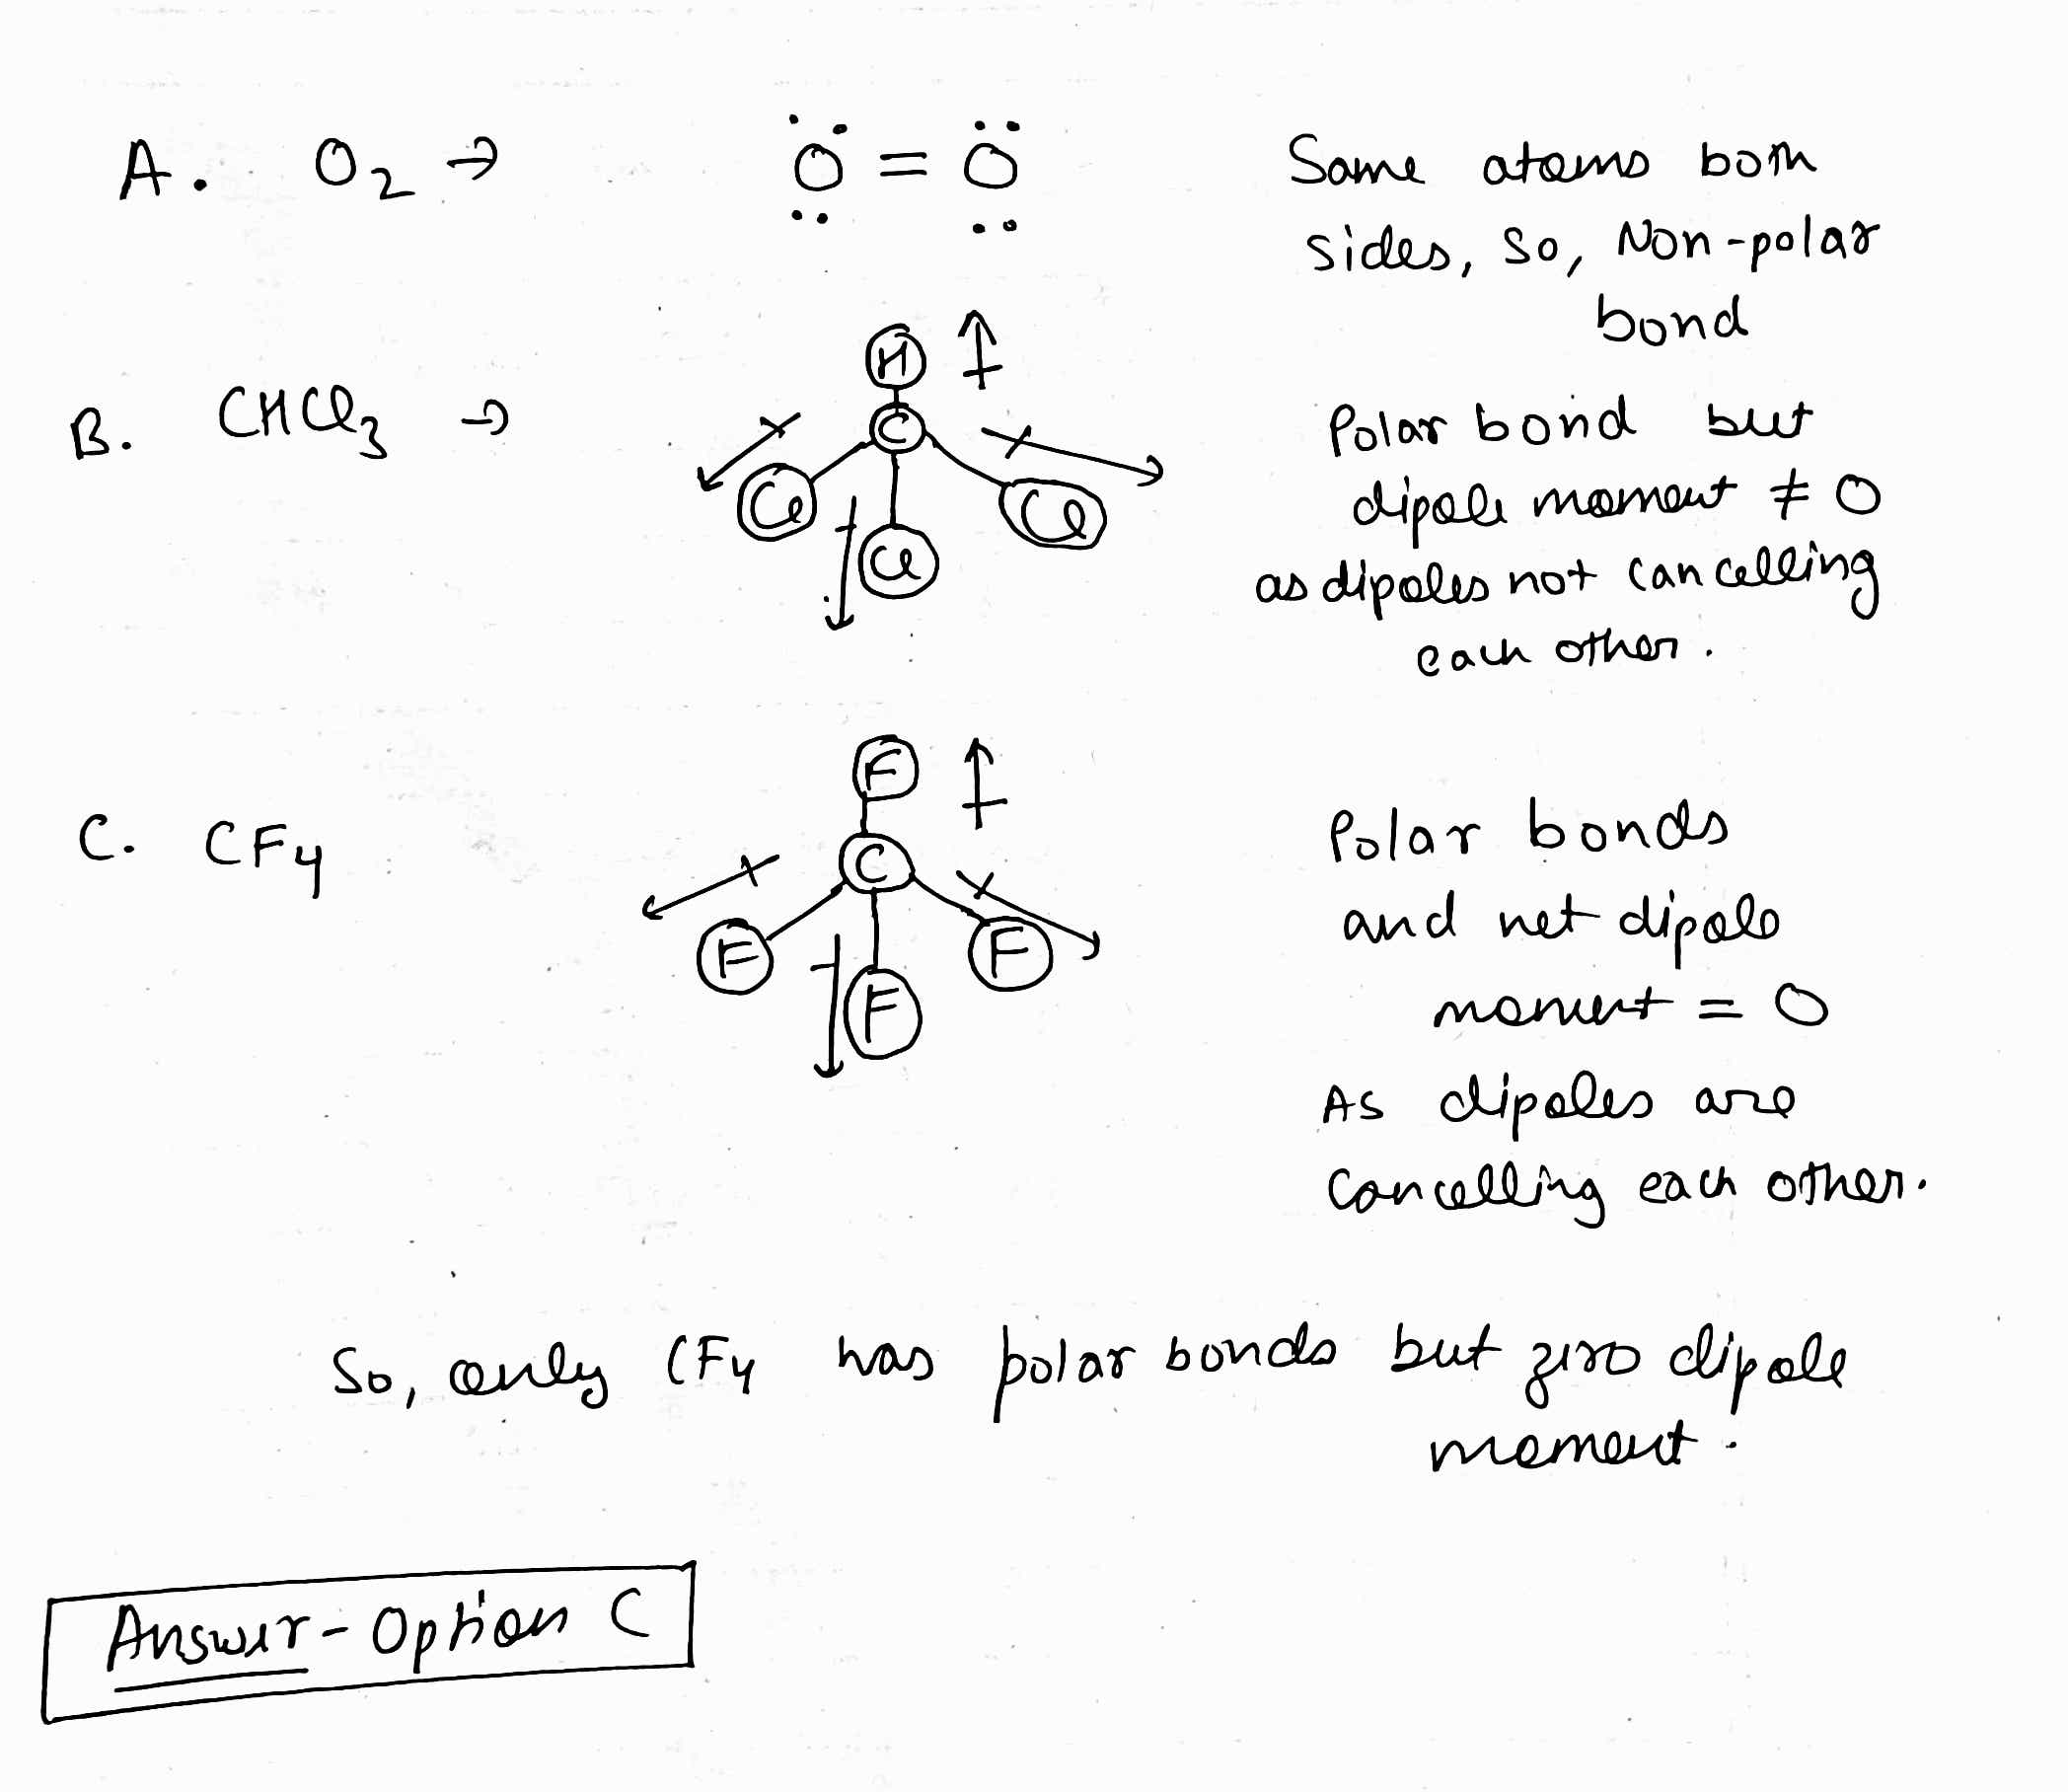 A. O2 → Ö = Ö Same atoms both
sides, So, Non-polar
bond
B. CHCl3 → H C Cl Cl Cl Polar bond but
dipole moment ≠ 0
as dipoles not cancelling
each other.
C. CF4 F C F F F Polar bonds
and net dipole
moment = 0
As dipoles are
cancelling each other.
So, only CF4 has polar bonds but zero dipole
moment.
Answer - Option C